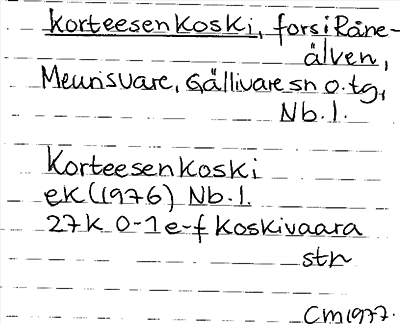 Korteesenkoski, fors i Råne-
älven,
Meurisvare, Gällivare sn o. tg,
Nb. l.
Korteesenkoski
ek (1976) Nb. l.
27K 0-1 e-f Koskivaara
str
CM 1977.